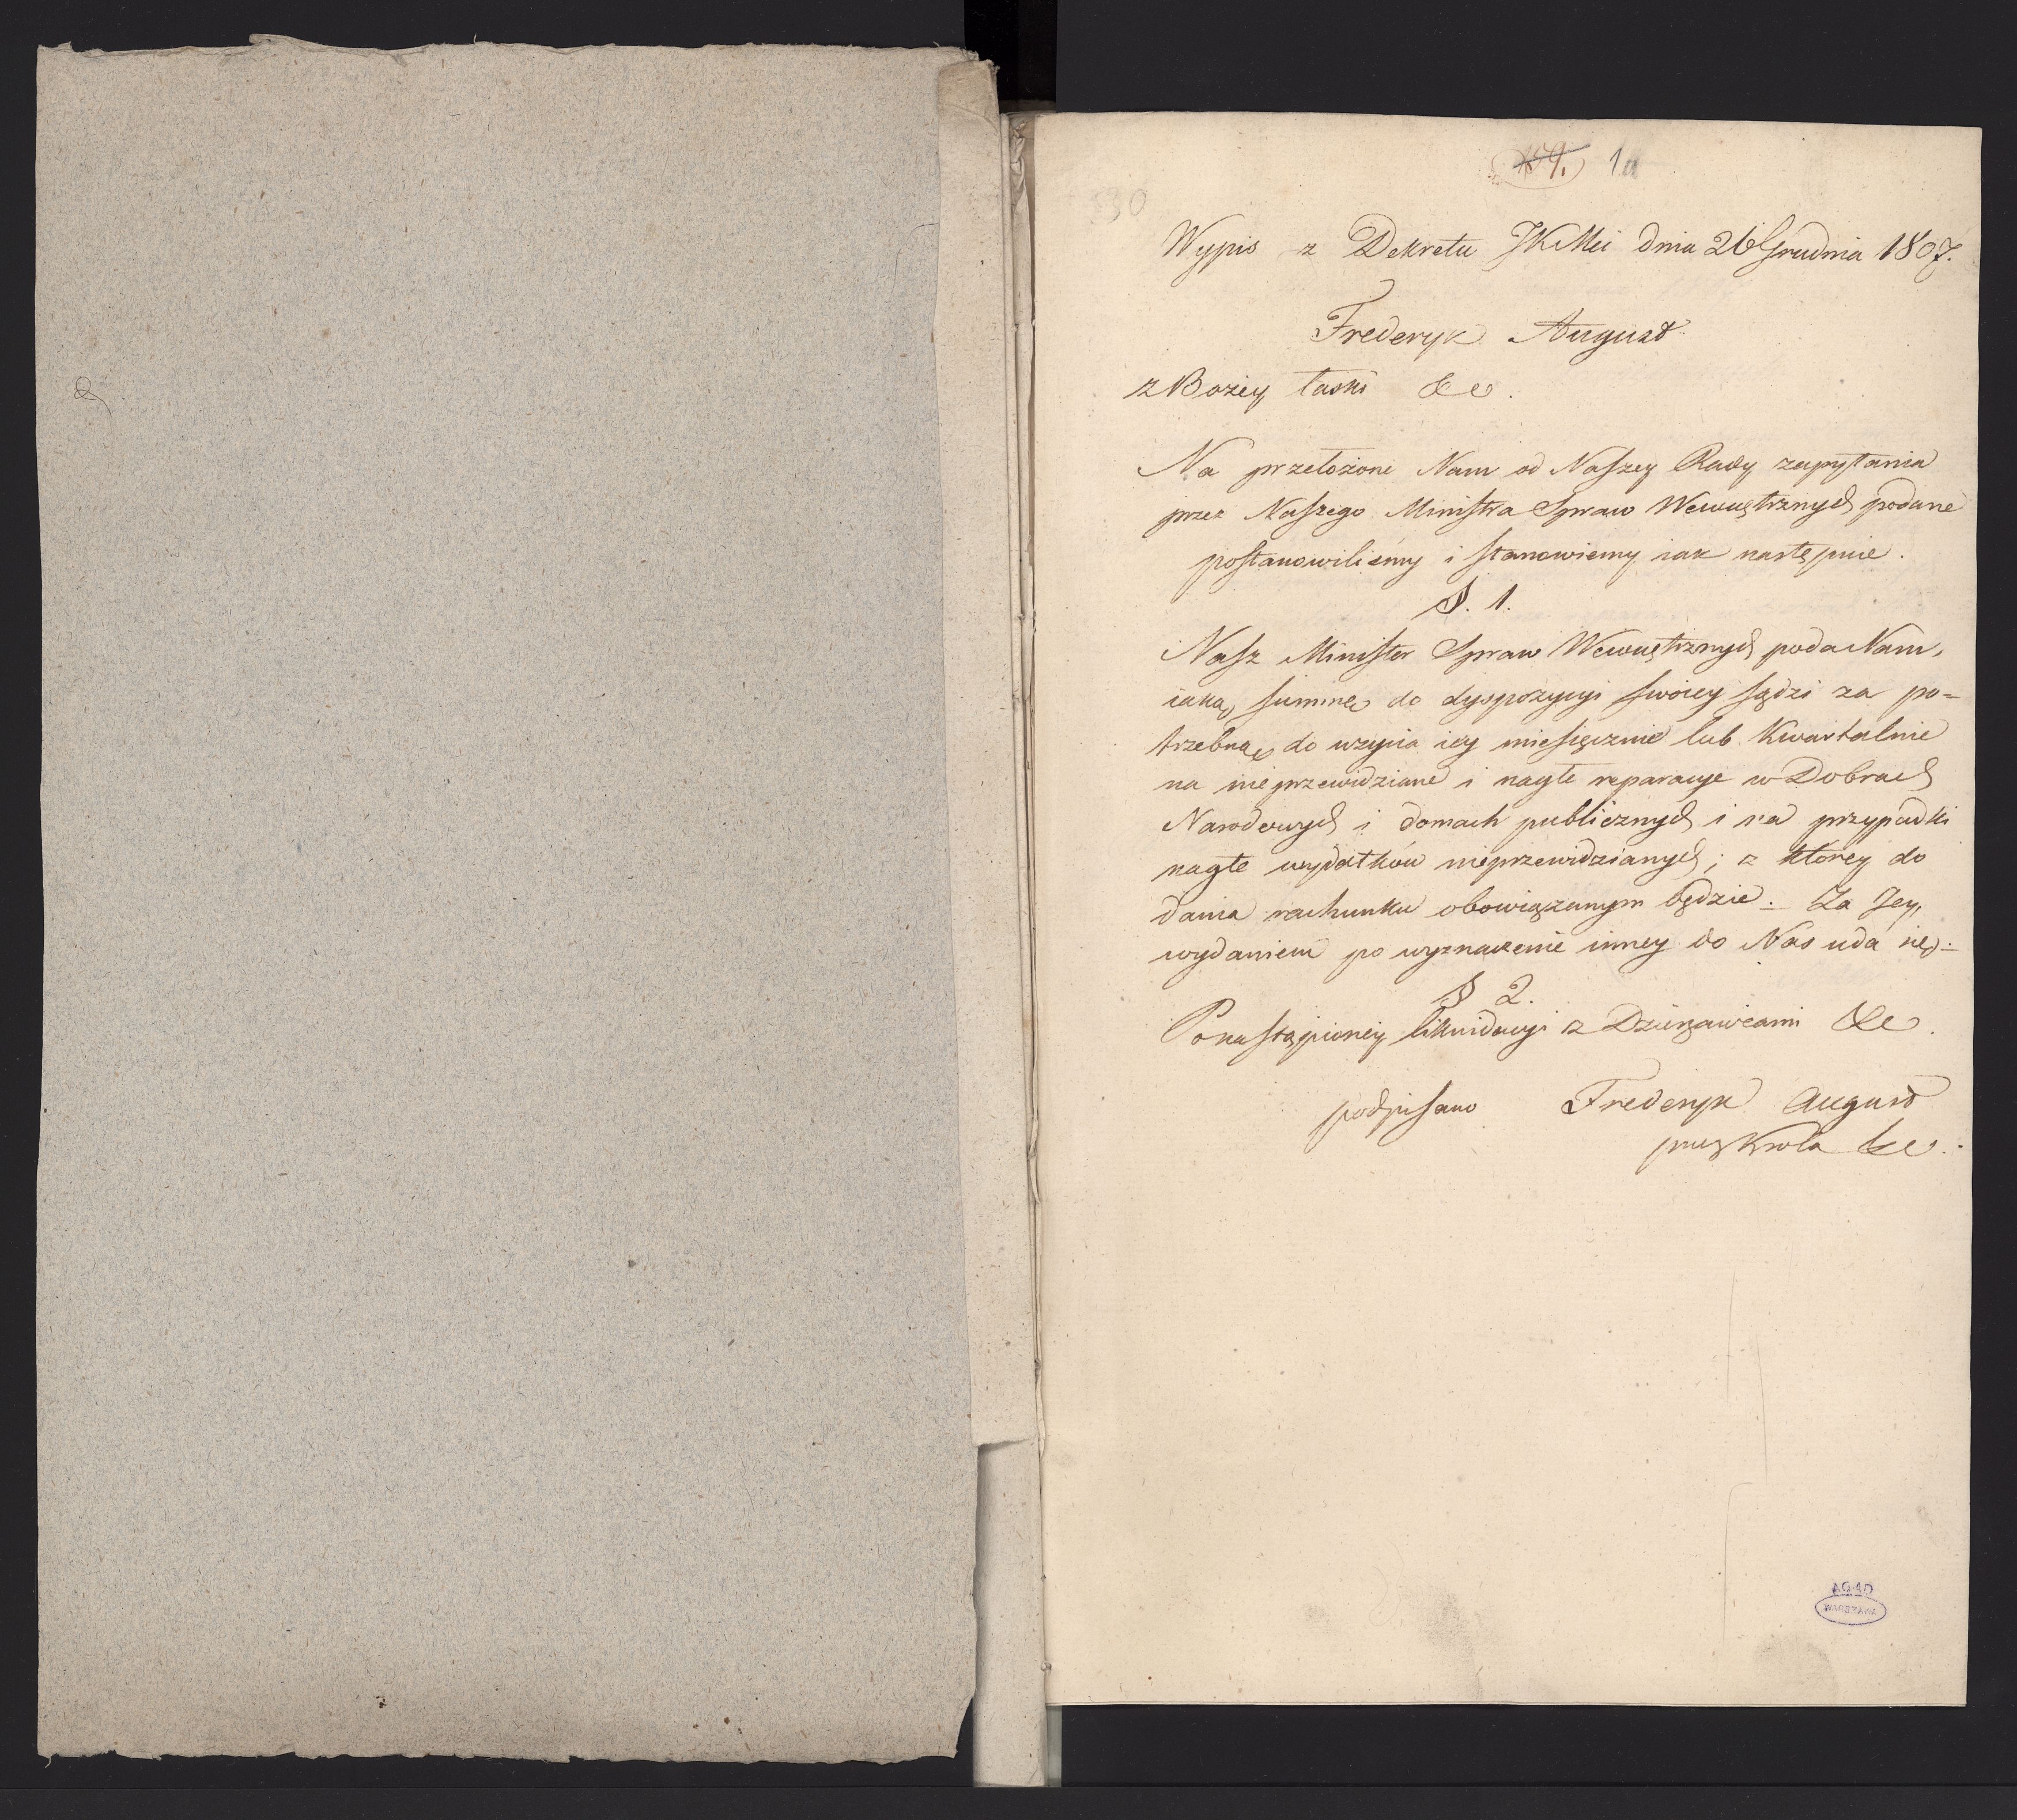 109. 1a
530
Wypis z Dekretu JKMci dnia 26 Grudnia 1807.
Frederyk August
z Bożey łaski &c.
Na przełożone Nam od Naszey Rady zapytania
przez Naszego Ministra Spraw Wewnętrznych podane
postanowiliśmy i stanowiemy iak następuie.
§. 1.
Nasz Minister Spraw Wewnętrznych poda Nam,
iaką summę do dyspozycyi swoiey sądzi za po=
trzebną, do użycia iey miesięcznie lub kwartalnie
na nieprzewidziane i nagłe reparacye w Dobrach
Narodowych i domach publicznych i na przypadki
nagłe wydatków nieprzewidzianych; z którey do
dania rachunku obowiązanym będzie. Za Jey
wydaniem po wyznaczenie inney do Nas uda się.
§ 2.
Po nastąpioney likwidacyi z Dzierżawcami &c.
podpisano Frederyk August
przez Króla &c.
AGAD
WARSZAWA